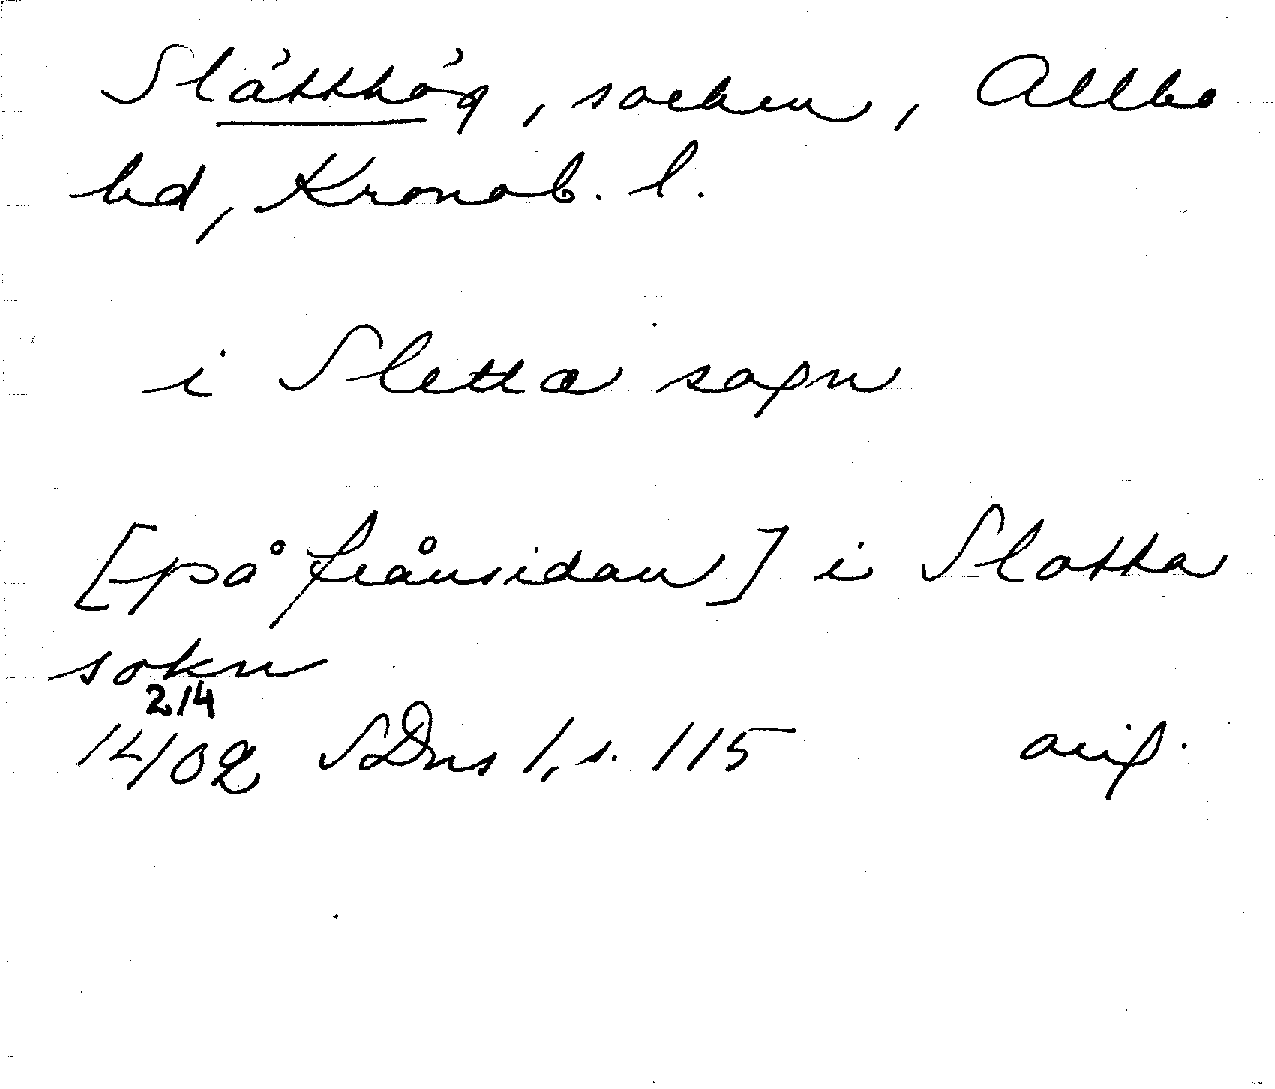 Slätthög, socken, Allbo
hd, Kronob. l.
i Sletta sogn
[på frånsidan] i Slatta
sokn
2/4
1402 SDns 1, s. 115 orig.